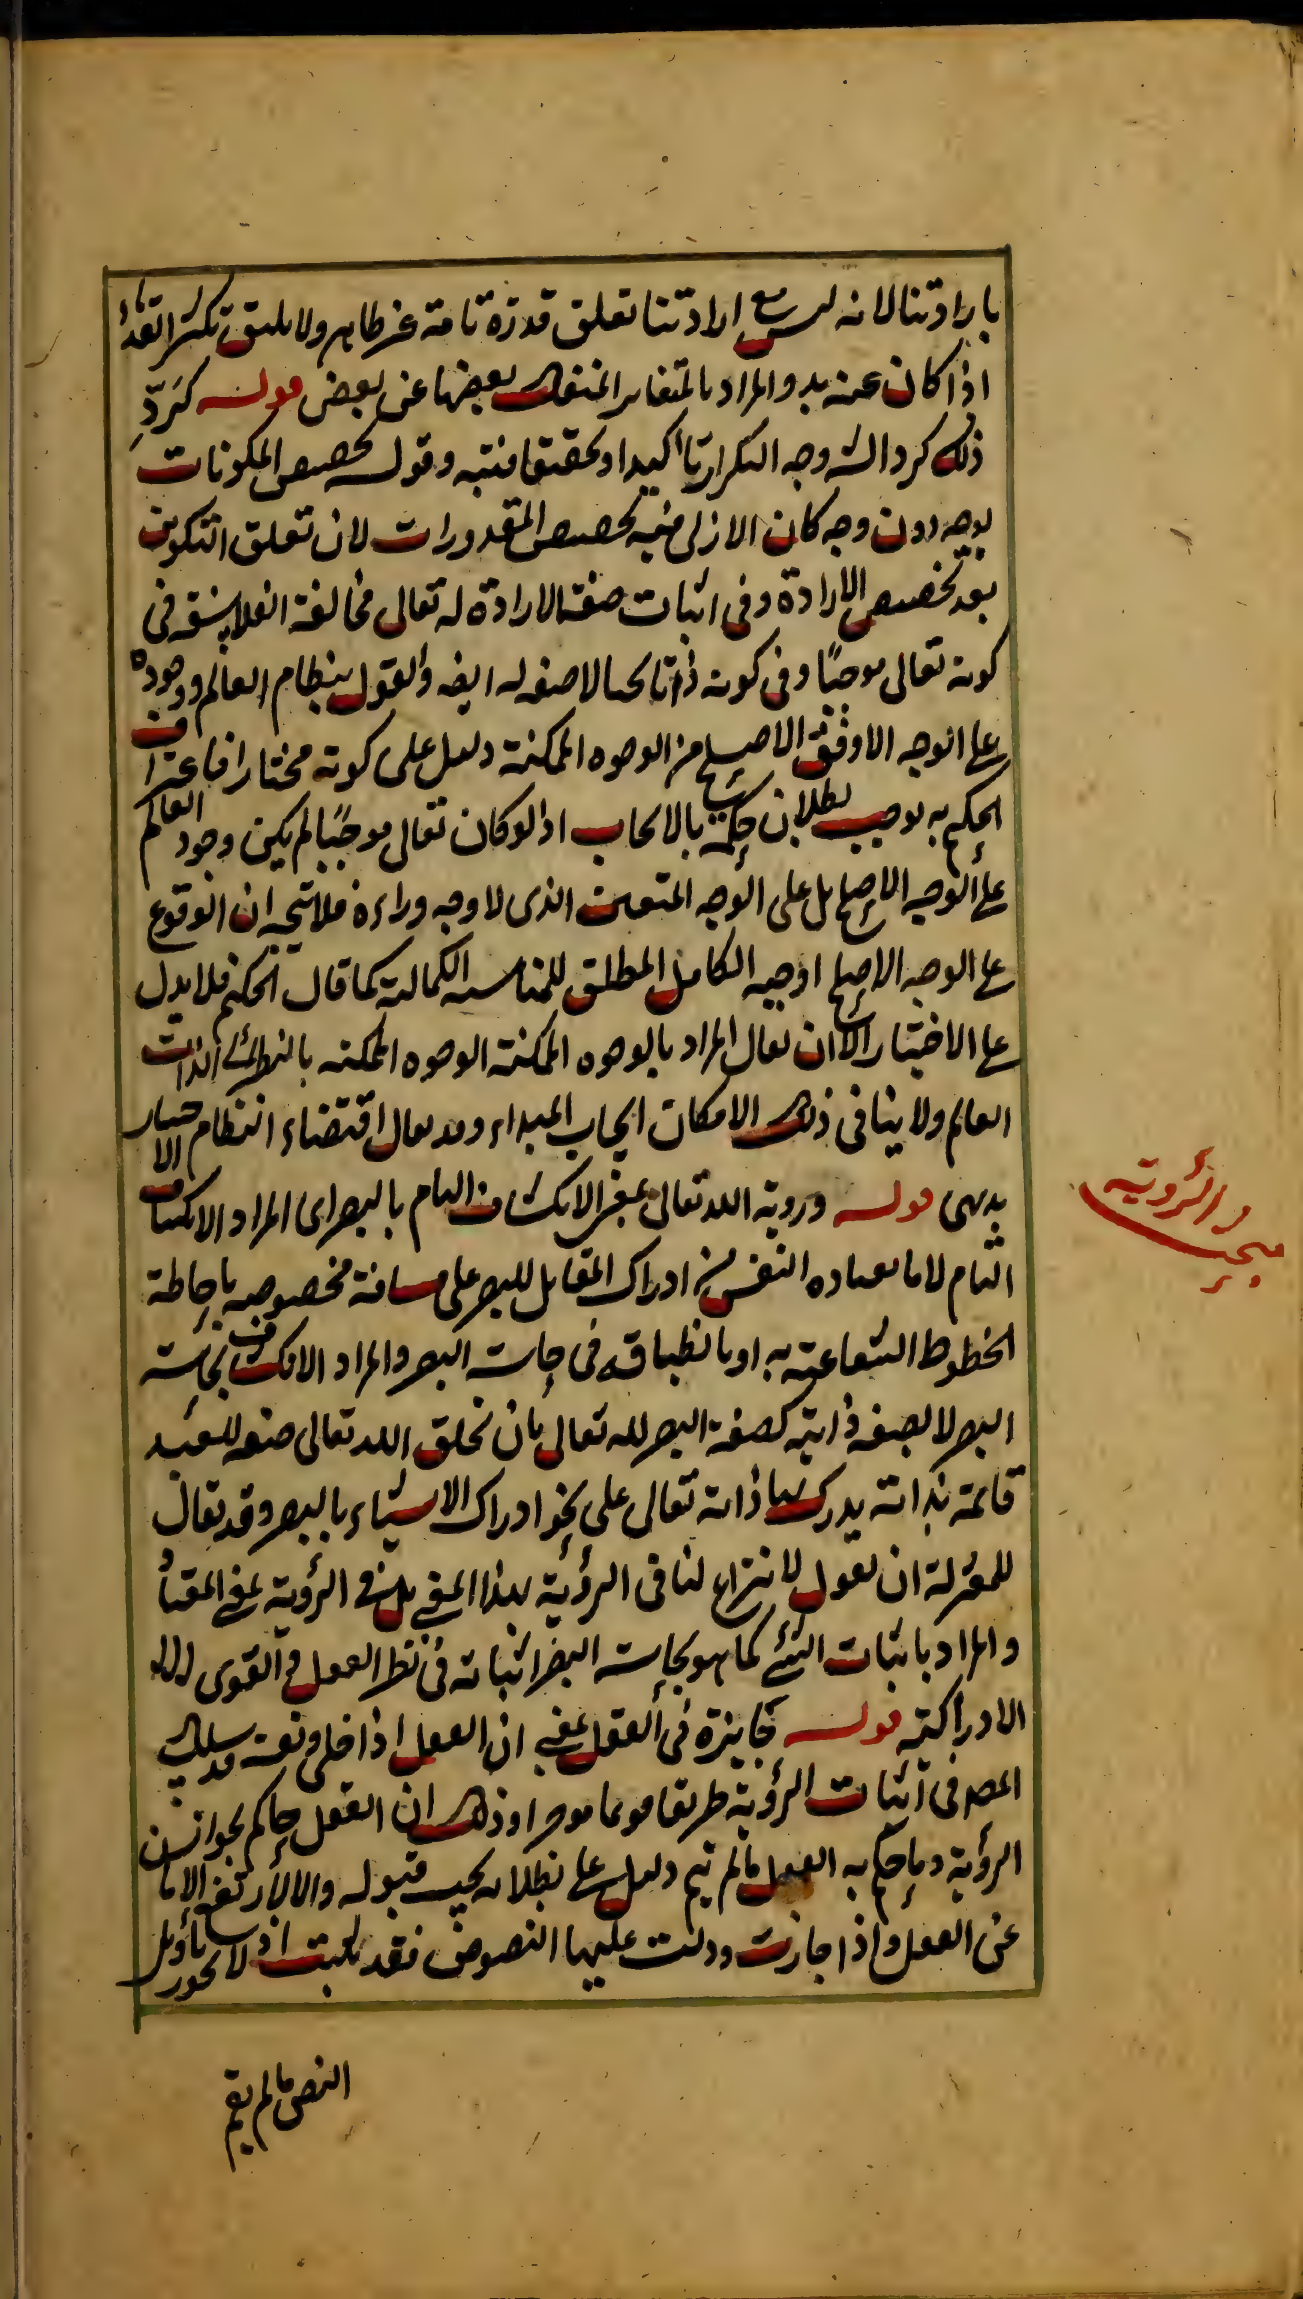 بارادتنا لانه ليس مع ارادتنا تعلق قدرة تامة غير ظاهر ولا يليق تكثير القدماء
اذا كان عنه بد والمراد بالمتغاير المنفك بعضها عن بعض قوله كرر
ذلك كرد الشه وجه التكرار تأكيدا وتحقيقا فتنبه وقوله تخصيص المكونات
بوجه دون وجه كان الازلى فيه تخصيص المقدورات لان تعلق التكوين
بعد تخصيص الارادة وفى اثبات صفة الارادة له تعالى مخالفة الفلاسفة فى
كونه تعالى موجبًا وفى كونه ذاتا بحتا لا صفة له ايضه والقول بنظام العالم ووجوده
على الوجه الاوفق الاصلح من الوجوه الممكنة دليل على كونه مختارا فاعتراف
الحكيم به يوجب بطلان حكمه بالايجاب اذ لو كان تعالى موجبًا لم يكن وجود العالم
على الوجه الاصلح بل على الوجه المتعين الذى لا وجه وراءه فلا يتجه ان الوقوع
على الوجه الاصلح اوجبه الكامل المطلق للمناسبة الكمالية كما قال الحكيم فلا يدل
على الاختيار الا ان يقال المراد بالوجوه الممكنة الوجوه الممكنه بالنظر الى ذات
العالم ولا ينافى ذلك الامكان ايجاب المبداء وقد يقال اقتضاء انتظام الاختيار
بديهى قوله ورؤية الله تعالى بمعنى الانكشاف التام بالبصر اى المراد الانكشاف
التام لا ما يعتاده النفس من ادراك المقابل للبصر على مسافة مخصوصه باحاطة
الخطوط الشعاعية به او بانطباقه فى حاسة البصر والمراد الانكشاف بحاسة
البصر لا بصفة ذاتية كصفة البصر لله تعالى بان يخلق الله تعالى صفة للعبد
قائمة بذاته يدرك بها ذاته تعالى على نحو ادراك الاشياء بالبصر وقد يقال
للمعتزلة ان نقول لا نزاع لنا فى الرؤية بهذا المعنى بل فى الرؤية بمعنى المعتاد
والمراد باثبات الشئ كما هو بحاسة البصر اثباته فى نظر العقل و القوى
الادراكية قوله جايزة فى العقل بمعنى ان العقل اذا خلى ونفسه قد سلك
المصه فى اثبات الرؤية طريقا قويما موجزا وذلك ان العقل حاكم بجواز
الرؤية وما حكم به العقل مالم يتم دليل على بطلانه يجب قبوله والا لارتفع الامان
عن العقل واذا جازت ودلت عليها النصوص فقد ثبت اذ لا يجوز تأويل
النص مالم يقم